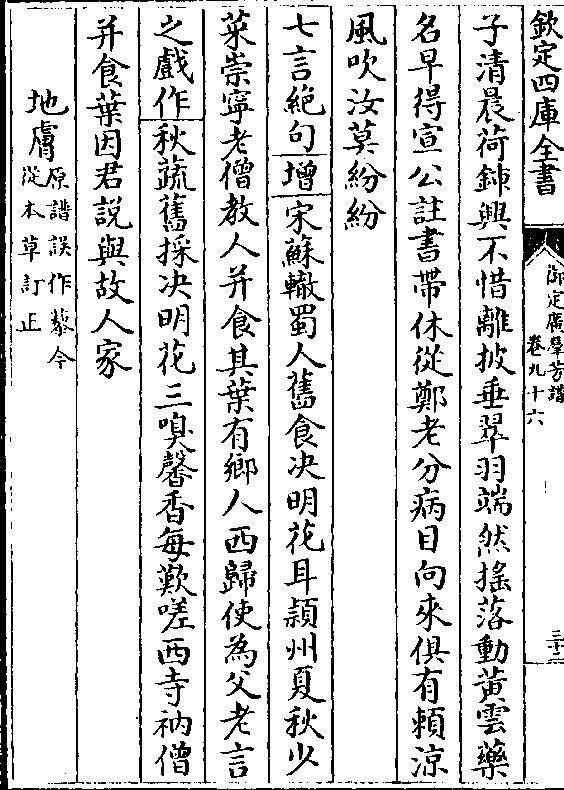 欽定四庫全書
御定廣羣芳譜
卷九十六
三十二
子清晨荷鋤興不惜離披垂翠羽端然搖落動黃雲藥
名早得宣公註書帶休從鄭老分病目向來俱有賴涼
風吹汝莫紛紛
七言絶句增宋蘇轍蜀人舊食决明花耳潁州夏秋少
菜崇寧老僧教人并食其葉有鄉人西歸使為父老言
之戲作秋蔬舊採决明花三嗅馨香每歎嗟西寺衲僧
并食葉因君説與故人家
地膚原譜誤作藜今
從本草訂正